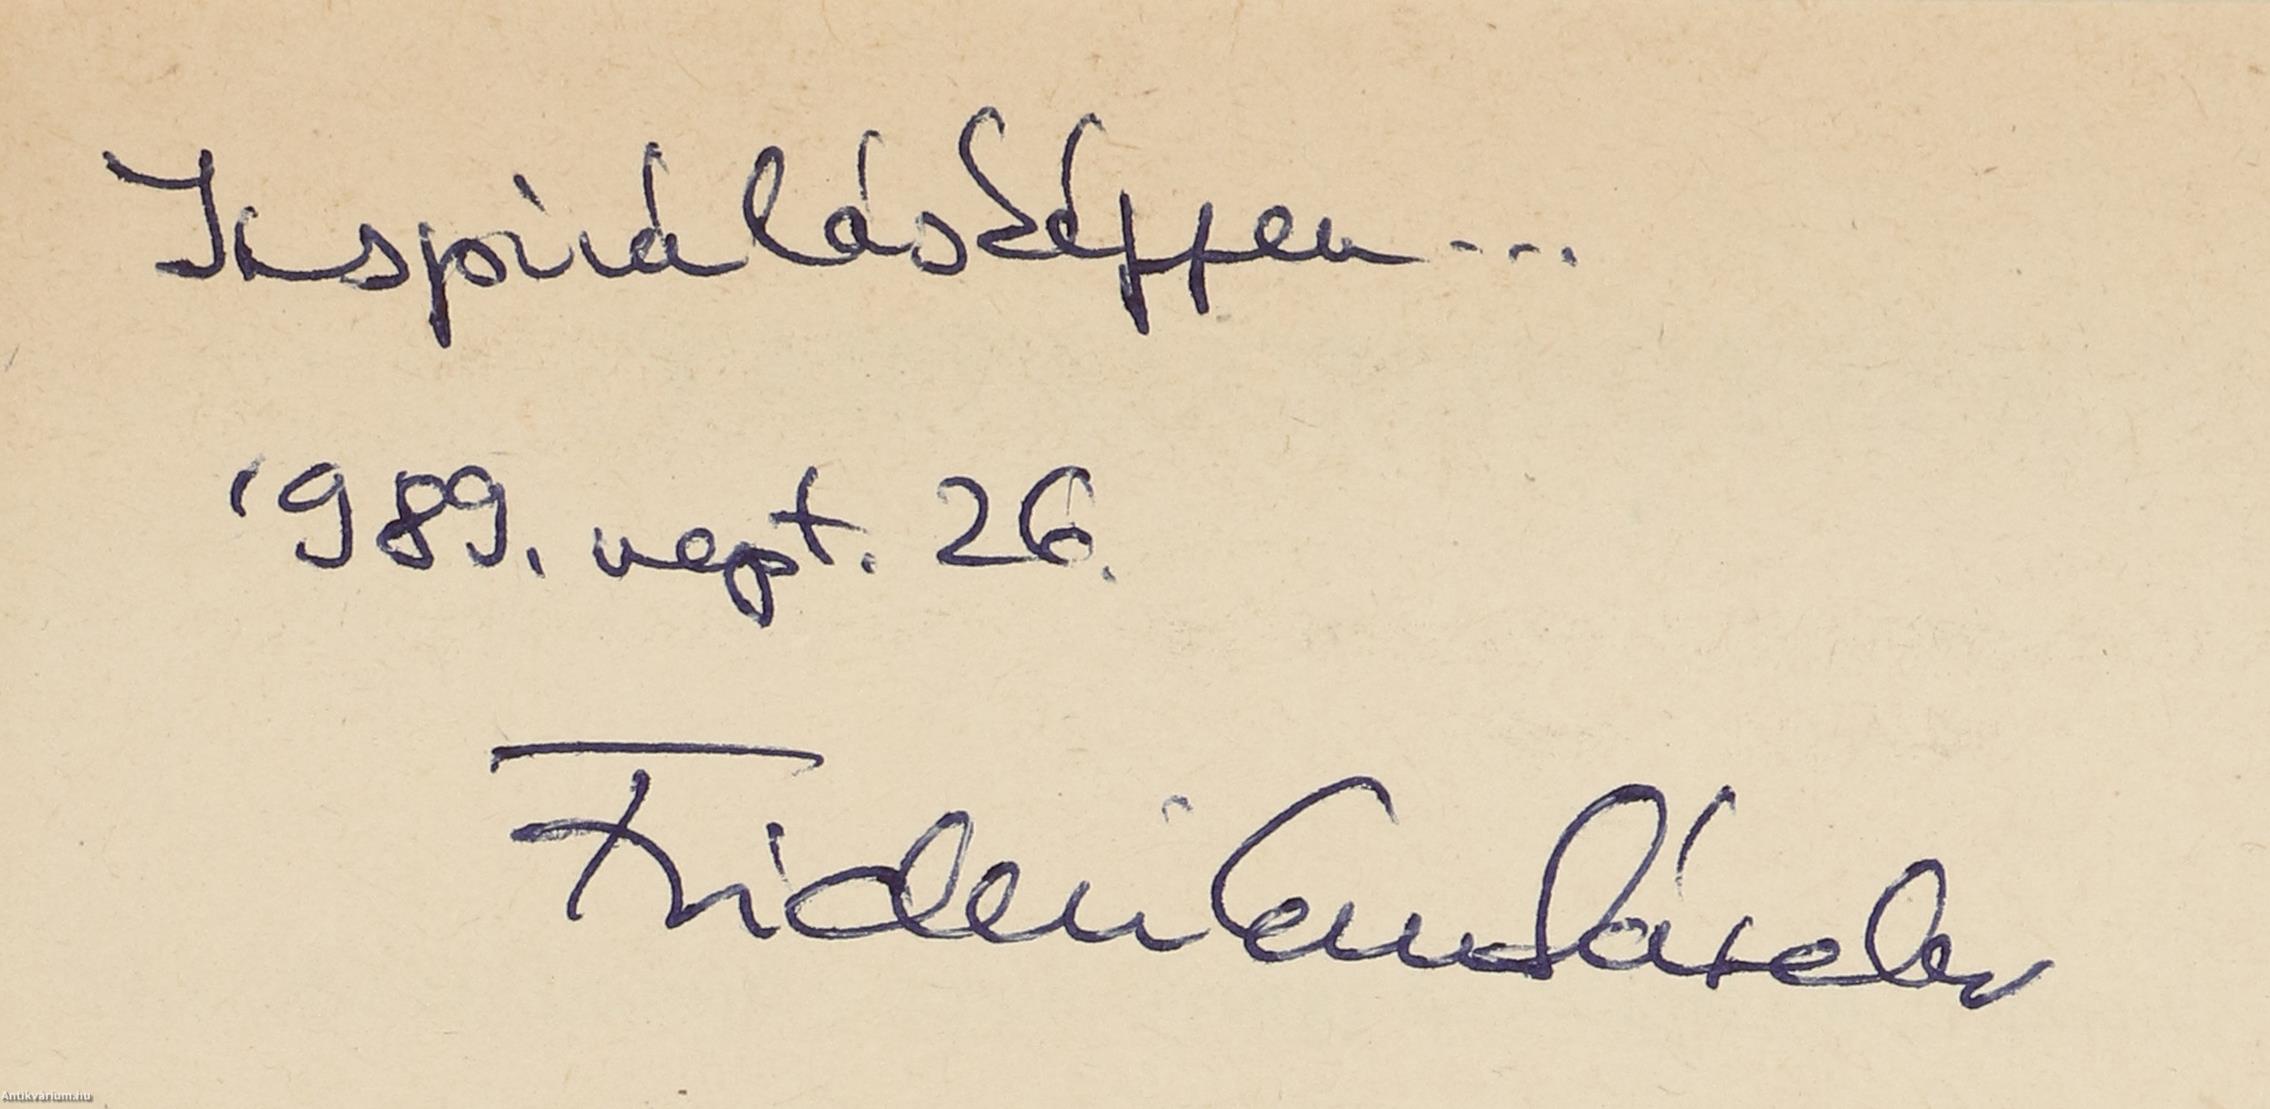 Inspirálásképpen...
1989. szept. 26.
Frideri
Antikvárium.hu